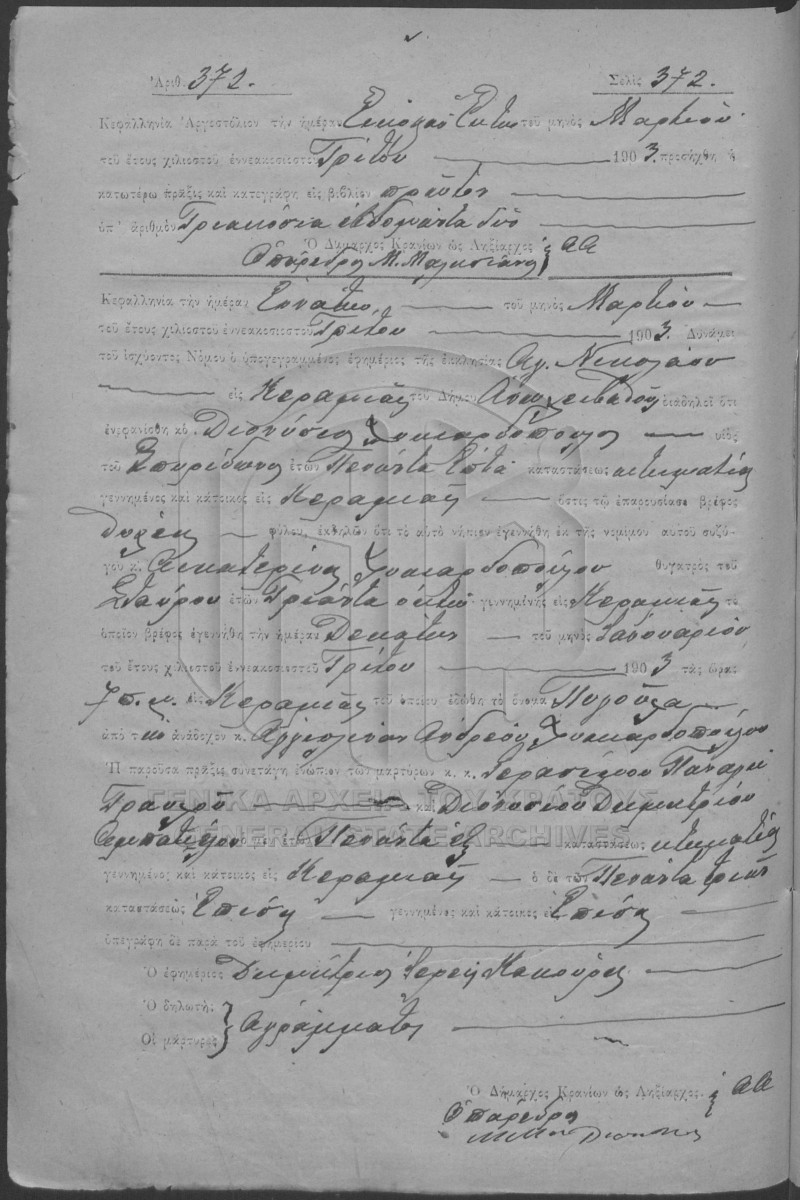 Ἀριθ. 372. Σελὶς 372.
Κεφαλληνία Ἀργοστόλιον τὴν ἡμέραν Εἰκοστὴν Ἕκτην τοῦ μηνὸς Μαρτίου
τοῦ ἔτους χιλιοστοῦ ἐννεακοσιοστοῦ Τρίτου 1903 προσήχθη ἡ
κατωτέρω πρᾶξις καὶ κατεγράφη εἰς βιβλίον πρῶτον
ὑπ' ἀριθμὸν Τριακόσια ἑβδομῆντα δύο
Ὁ Δήμαρχος Κρανίων ὡς Ληξίαρχος
Ὁ πάρεδρος Μ.
Κεφαλληνία τὴν ἡμέραν Ἐννάτην τοῦ μηνὸς Μαρτίου
τοῦ ἔτους χιλιοστοῦ ἐννεακοσιοστοῦ Τρίτου 1903. Δυνάμει
τοῦ ἰσχύοντος Νόμου ὁ ὑπογεγραμμένος ἐφημέριος τῆς ἐκκλησίας Ἁγ. Νικολάου
εἰς Κεραμιὰς τοῦ Δήμου διαδηλοῖ ὅτι
ἐνεφανίσθη ὁ κ. Διονύσιος υἱὸς
τοῦ Σπυρίδωνος ἐτῶν Πενῆντα Ἑπτὰ καταστάσεως κτηματίας
γεννημένος καὶ κάτοικος εἰς Κεραμιὰς ὅστις τῷ ἐπαρουσίασε βρέφος
θήλεος φύλου, ἐκδηλῶν ὅτι τὸ αὐτὸ νήπιον ἐγεννήθη ἐκ τῆς νομίμου αὐτοῦ συζύ-
γου κ. Αἰκατερίνης θυγατρὸς τοῦ
Σταύρου ἐτῶν Τριάντα ὀκτὼ γεννημένης εἰς Κεραμιὰς τὸ
ὁποῖον βρέφος ἐγεννήθη τὴν ἡμέραν Δεκάτην τοῦ μηνὸς Ἰανουαρίου
τοῦ ἔτους χιλιοστοῦ ἐννεακοσιοστοῦ Τρίτου 1903 τὰς ὥρας
7 π.μ. εἰς Κεραμιὰς τοῦ ὁποίου ἐδόθη τὸ ὄνομα
ἀπὸ τὴν ἀνάδοχον κ. Ἀγγελικὴν Ἀνδρέου
Ἡ παροῦσα πρᾶξις συνετάχη ἐνώπιον τῶν μαρτύρων κ. κ. Γερασίμου
καὶ Διονυσίου Δημητρίου
ὁ μὲν ἐτῶν Πενῆντα ἓξ καταστάσεως κτηματίας
γεννημένος καὶ κάτοικος εἰς Κεραμιὰς ὁ δὲ τῶν Πενῆντα τριῶν
καταστάσεως Ἐπίσης γεννημένος καὶ κάτοικος εἰς Ἐπίσης
ὑπεγράφη δὲ παρὰ τοῦ ἐφημερίου
Ὁ ἐφημέριος Δημήτριος Ἱερεὺς
Ὁ δηλωτὴς
Οἱ μάρτυρες
Ἀγράμματοι
Ὁ Δήμαρχος Κρανίων ὡς Ληξίαρχος.
Ὁ πάρεδρος
ΓΕΝΙΚΑ ΑΡΧΕΙΑ ΤΟΥ ΚΡΑΤΟΥΣ
GENERAL STATE ARCHIVES